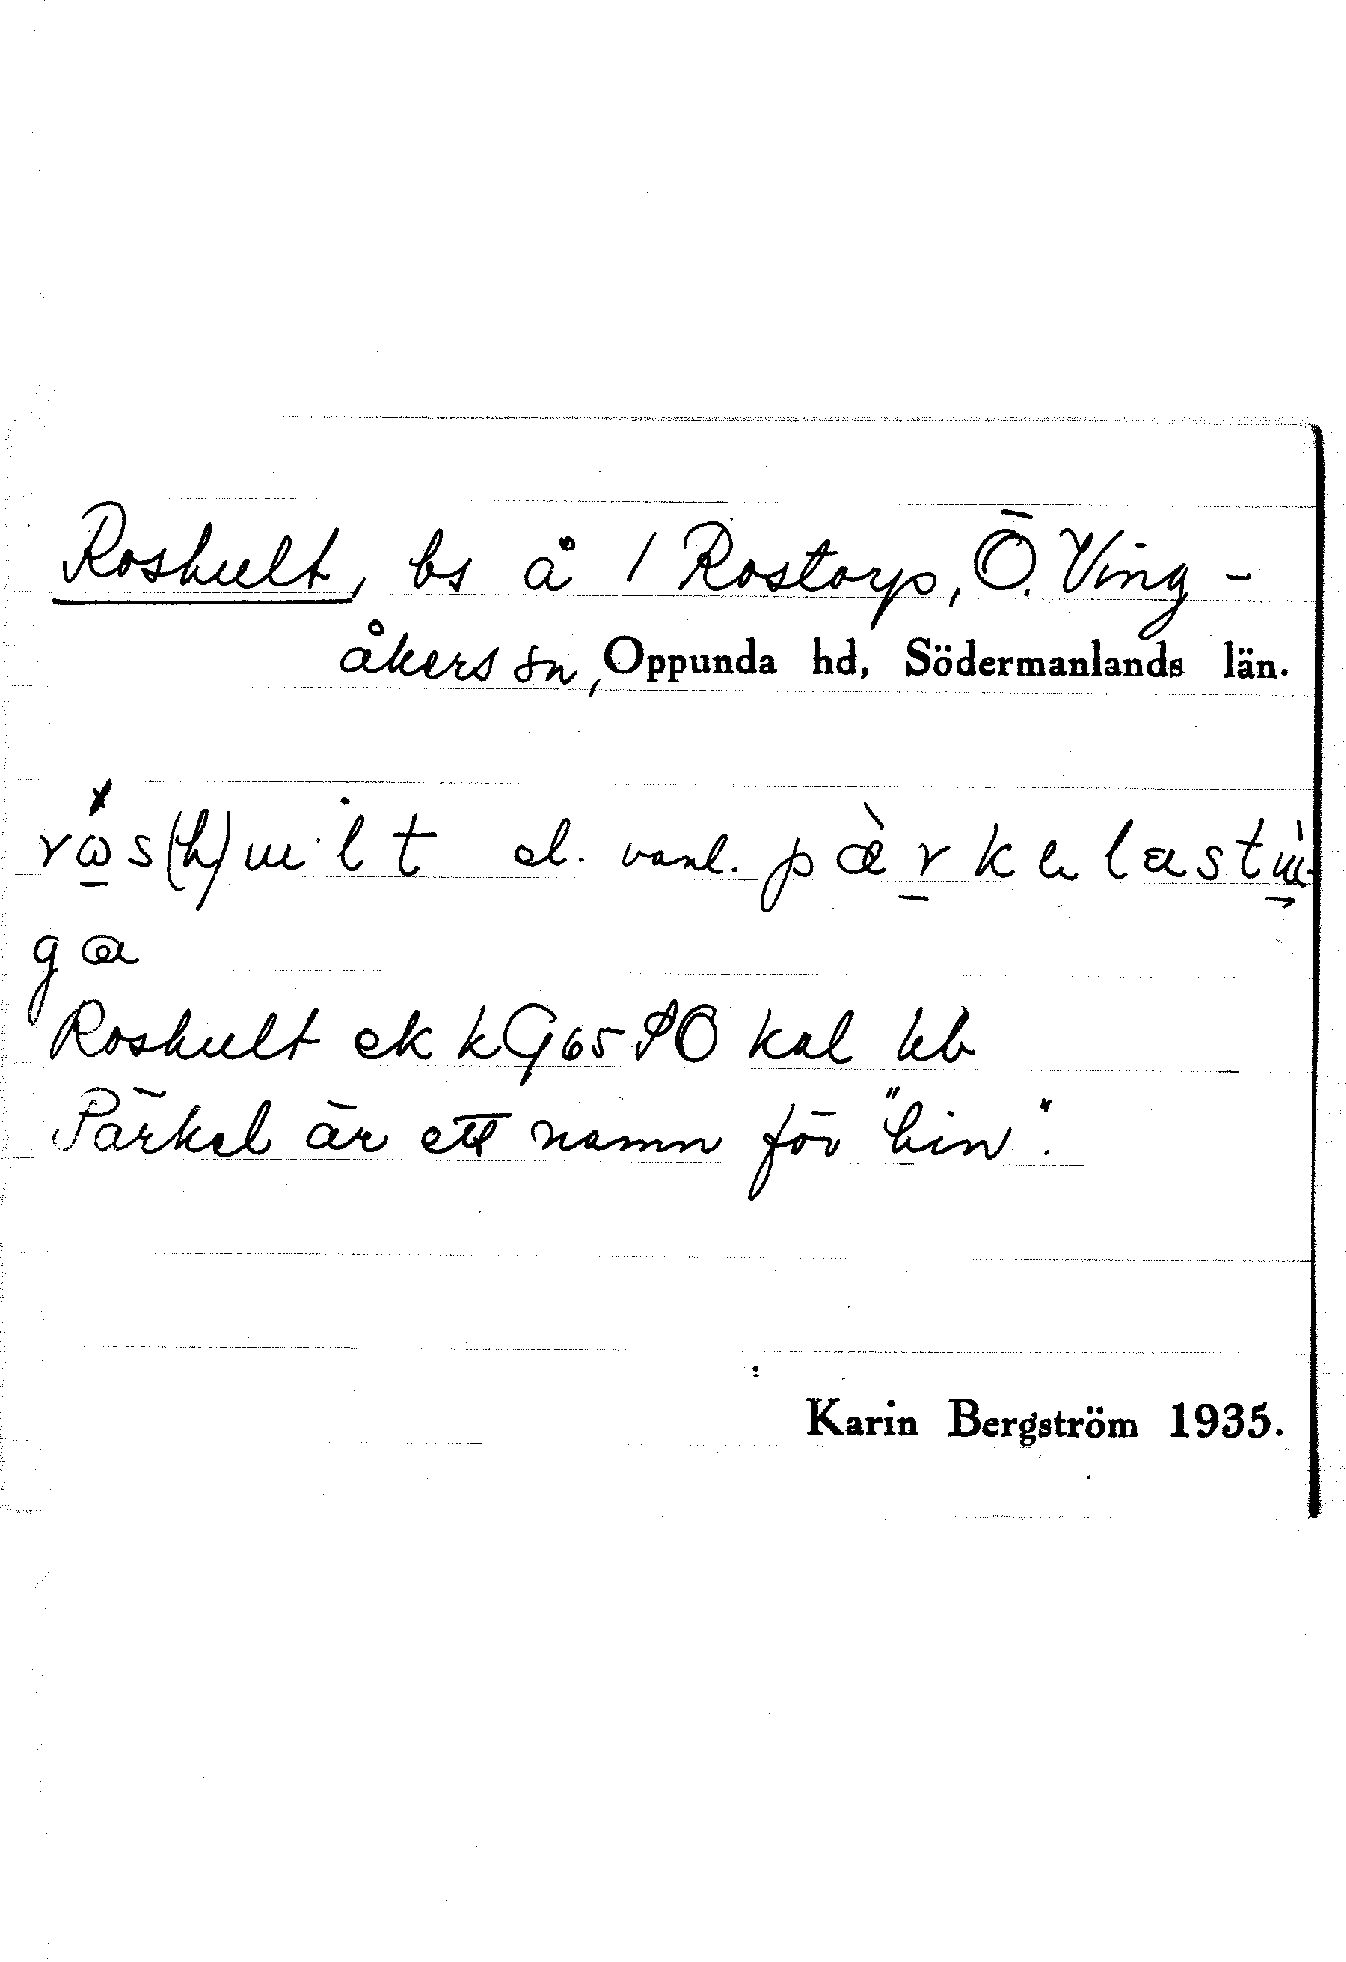 Roshult, bs å 1 Rostorp, Ö. Ving-
åkers sn, Oppunda hd, Södermanlands län.
el. vanl.
Roshult ek kG65 SO kal kb
Pärkel är ett namn för "hin".
Karin Bergström 1935.